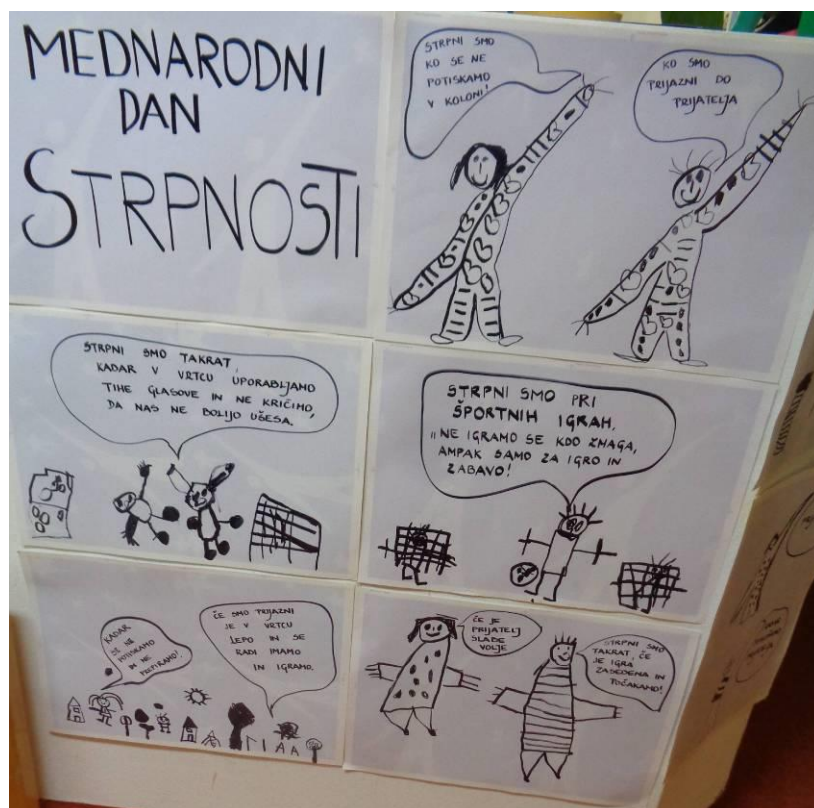 MEDNARODNI
DAN
STRPNOSTI
STRPNI SMO
KO SE NE
POTISKAMO
V KOLONI!
KO SMO
PRIJAZNI DO
PRIJATELJA
STRPNI SMO TAKRAT,
KADAR V VRTCU UPORABLJAMO
TIHE GLASOVE IN NE KRIČIMO,
DA NAS NE BOLIJO UŠESA.
STRPNI SMO PRI
ŠPORTNIH IGRAH,
"NE IGRAMO SE KDO ZMAGA,
AMPAK SAMO ZA IGRO IN
ZABAVO!
KADAR
SE NE
POTISKAMO
IN NE
PREPIRAMO!
ČE SMO PRIJAZNI
JE V VRTCU
LEPO IN SE
RADI IMAMO
IN IGRAMO.
ČE JE
PRIJATELJ
SLABE
VOLJE
STRPNI SMO
TAKRAT, ČE
JE IGRA
ZASEDENA IN
POČAKAMO!